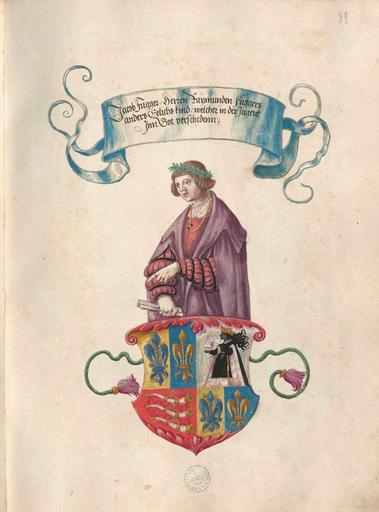 89
Jacob Fugger, Herren Raymunden Fuggers
anders Eelichs kind, welcher in der Jugent
Inn Got verschidenn,